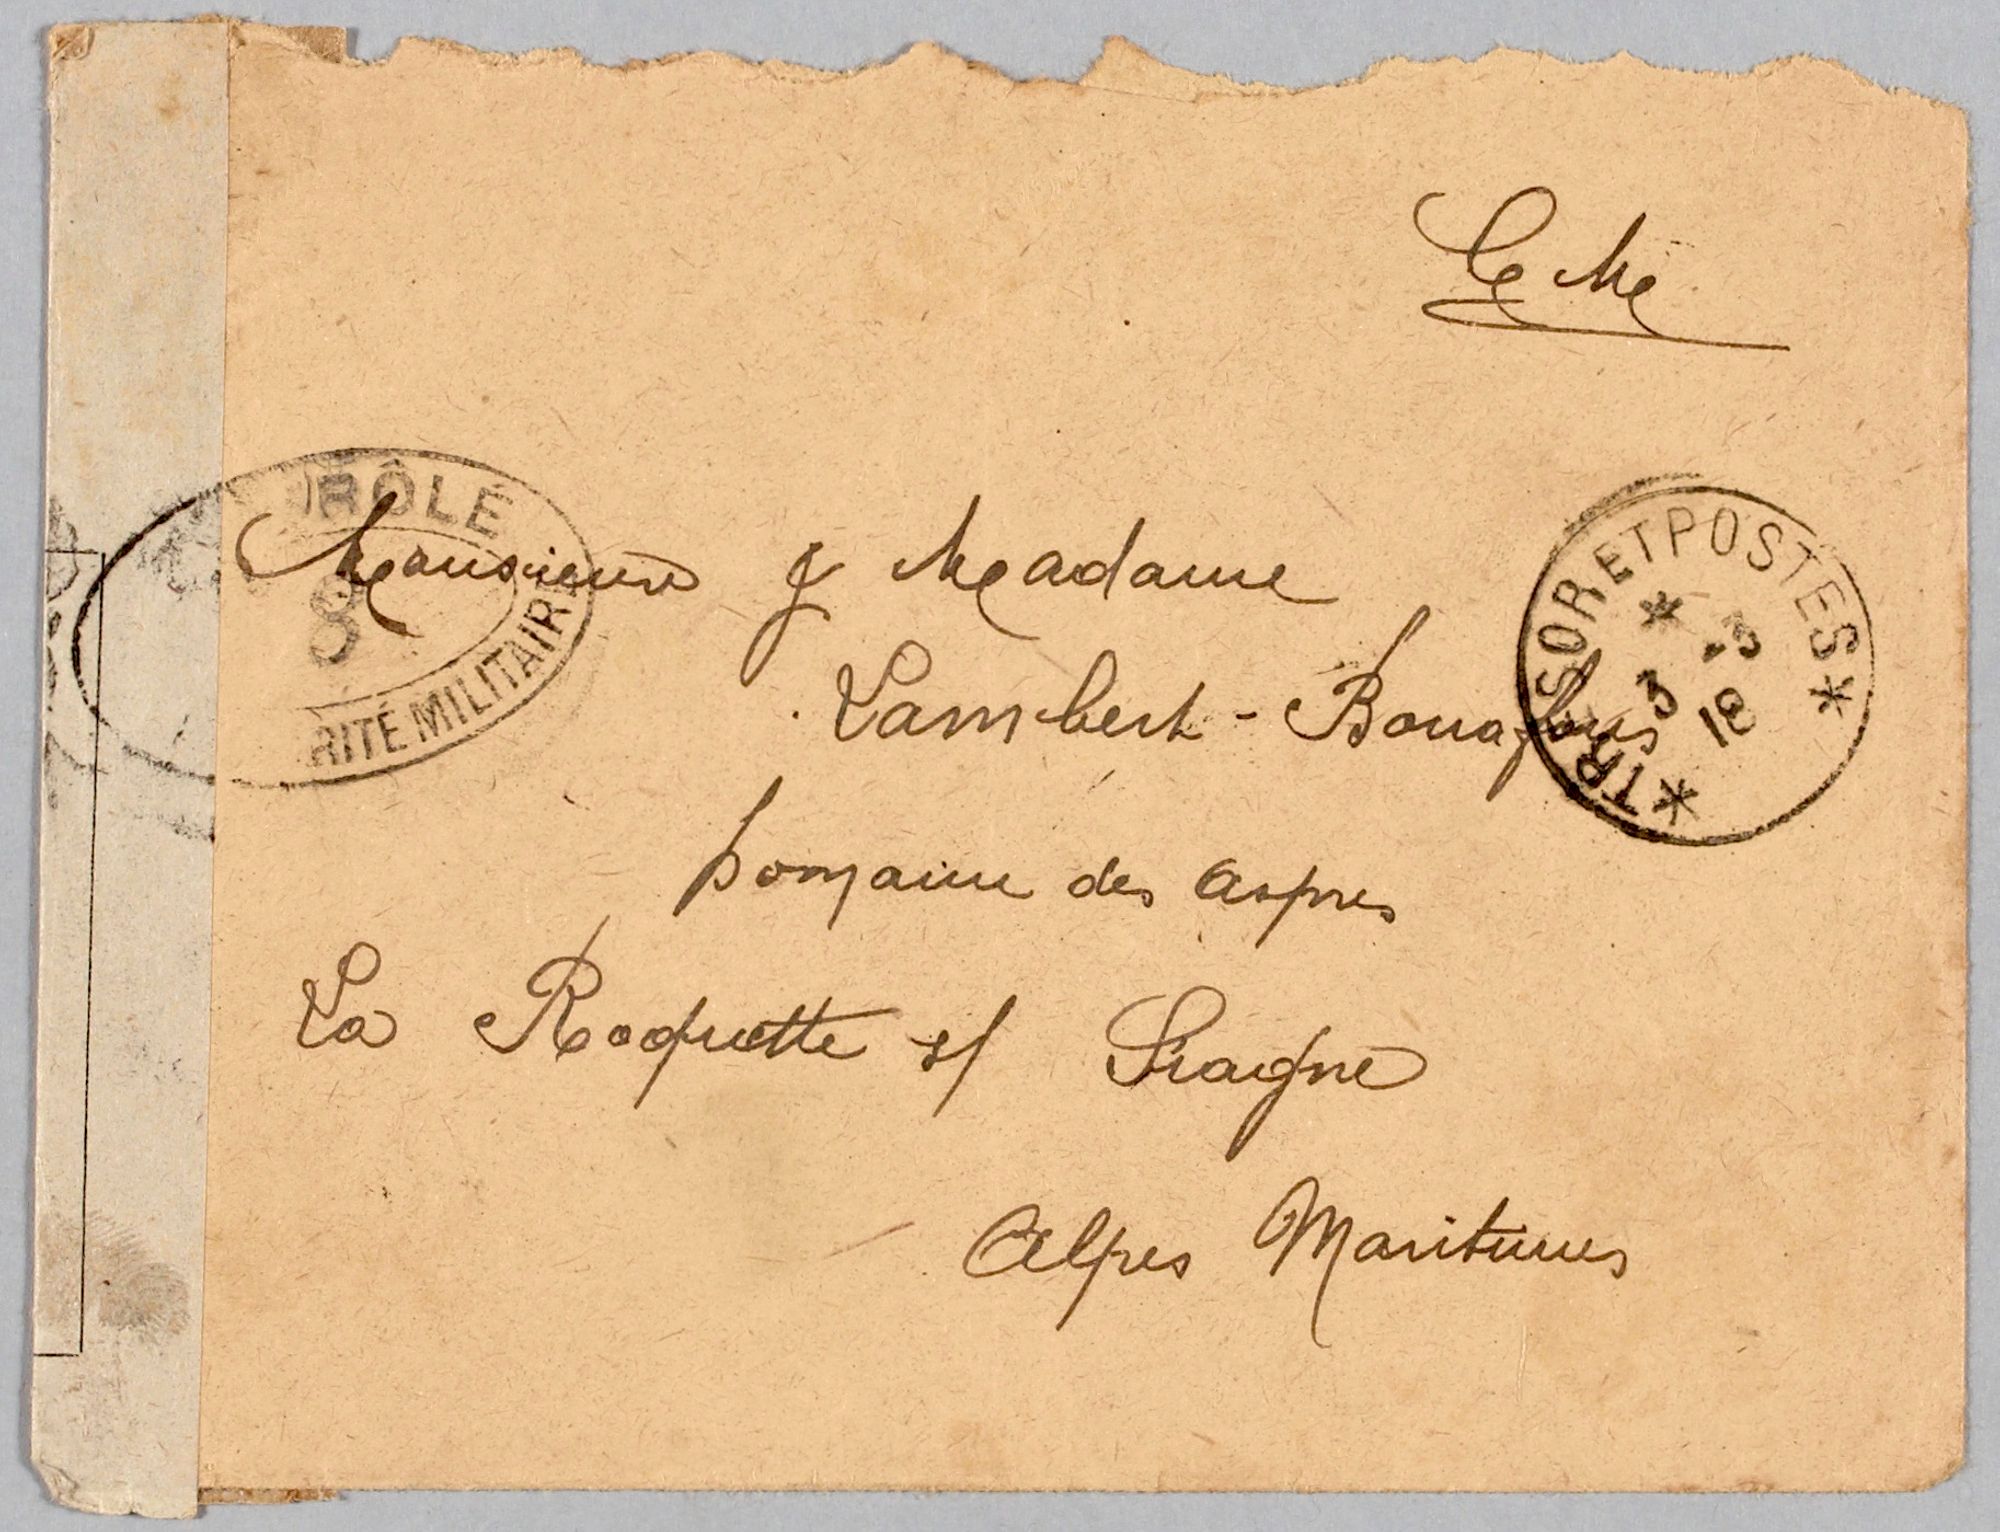 Ce Me
RÔLÉ
8
RITÉ MILITAIRE
Monsieur & Madame
Lambert-Bonafous
Domaine des aspres
La Roquette s/ Siagne
Alpes Maritimes
*TRESOR ET POSTES*
* 3 -3
18